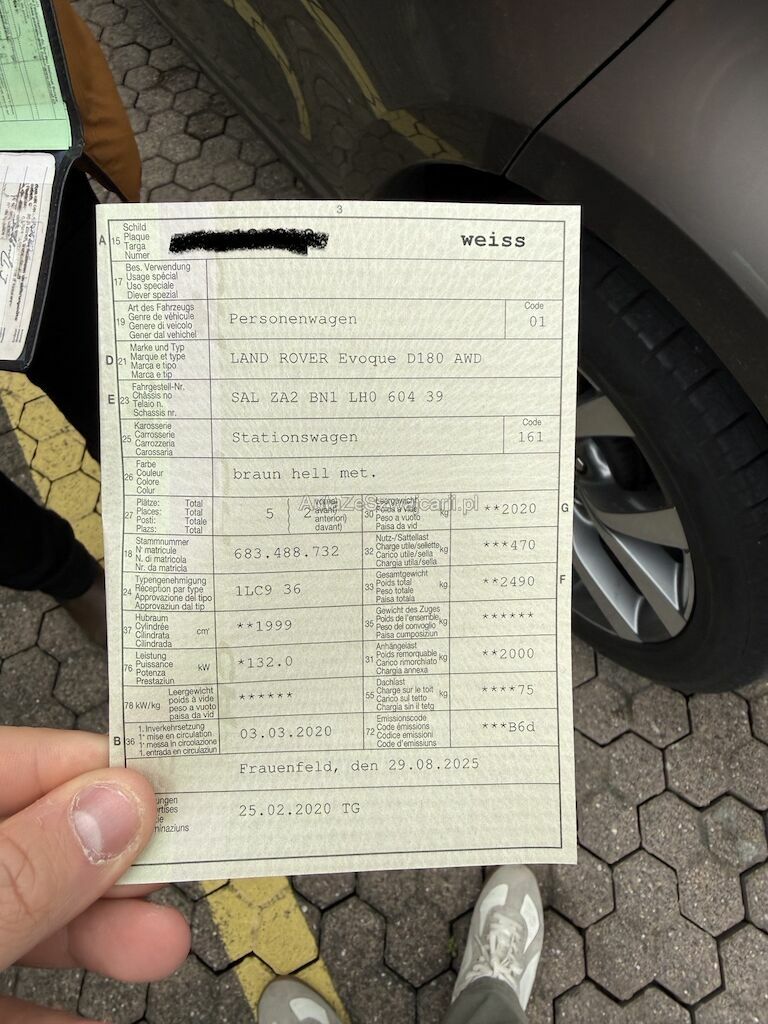 3
A 15 Schild
Plaque
Targa
Numer
weiss
17 Bes. Verwendung
Usage spécial
Uso speciale
Diever spezial
19 Art des Fahrzeugs
Genre de véhicule
Genere di veicolo
Gener dal vehichel
Personenwagen
Code
01
D 21 Marke und Typ
Marque et type
Marca e tipo
Marca e tip
LAND ROVER Evoque D180 AWD
E 23 Fahrgestell-Nr.
Châssis no
Telaio n.
Schassis nr.
SAL ZA2 BN1 LH0 604 39
25 Karosserie
Carrosserie
Carrozzeria
Carossaria
Stationswagen
Code
161
26 Farbe
Couleur
Colore
Colur
braun hell met.
27 Plätze: Total
Places: Total
Posti: Totale
Plazs: Total
5 ( 2 vorne)
avant)
anterion)
davant)
30 Leergewicht
Poids à vide
Peso a vuoto
Paisa da vid
kg
**2020
G
18 Stammnummer
N° matricule
N. di matricola
Nr. da matricla
683.488.732
32 Nutz-/Sattellast
Charge utile/sellette
Carico utile/sella
Chargia utila/sella
kg
***470
24 Typengenehmigung
Réception par type
Approvazione del tipo
Approvaziun dal tip
1LC9 36
33 Gesamtgewicht
Poids total
Peso totale
Paisa totala
kg
**2490
F
37 Hubraum
Cylindrée
Cilindrata
Cilindrada
cm³
**1999
35 Gewicht des Zuges
Poids de l'ensemble
Peso del convoglio
Paisa cumposiziun
kg
******
76 Leistung
Puissance
Potenza
Prestaziun
kW
*132.0
31 Anhängelast
Poids remorquable
Carico rimorchiato
Chargia annexa
kg
**2000
78 kW/kg Leergewicht
poids à vide
peso a vuoto
paisa da vid
******
55 Dachlast
Charge sur le toit
Carico sul tetto
Chargia sin il tetg
kg
****75
B 36 1. Inverkehrsetzung
1re mise en circulation
1a messa in circolazione
1. entrada en circulaziun
03.03.2020
72 Emissionscode
Code émissions
Codice emissioni
Code d'emissiuns
***B6d
Frauenfeld, den 29.08.2025
25.02.2020 TG